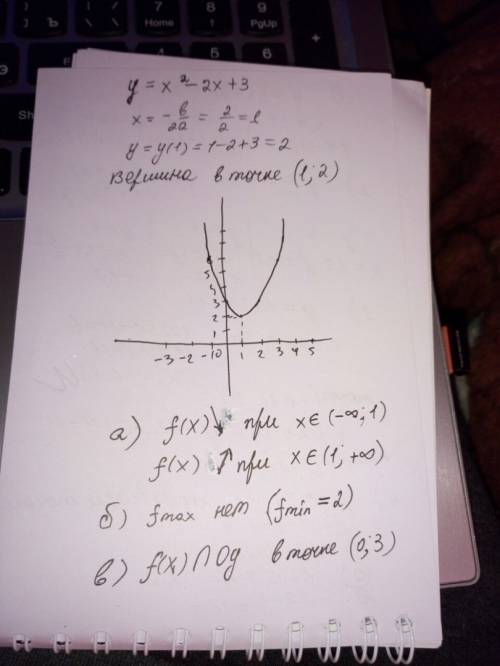 y = x² - 2x + 3
x = -b/2a = 2/2 = 1
y = y(1) = 1 - 2 + 3 = 2
вершина в точке (1; 2)
6
5
4
3
2
1
-3 -2 -1 0 1 2 3 4 5
а) f(x) ↓ при x ∈ (-∞; 1)
f(x) ↑ при x ∈ (1; +∞)
б) fmax нет (fmin = 2)
в) f(x) ∩ Oy в точке (0; 3)